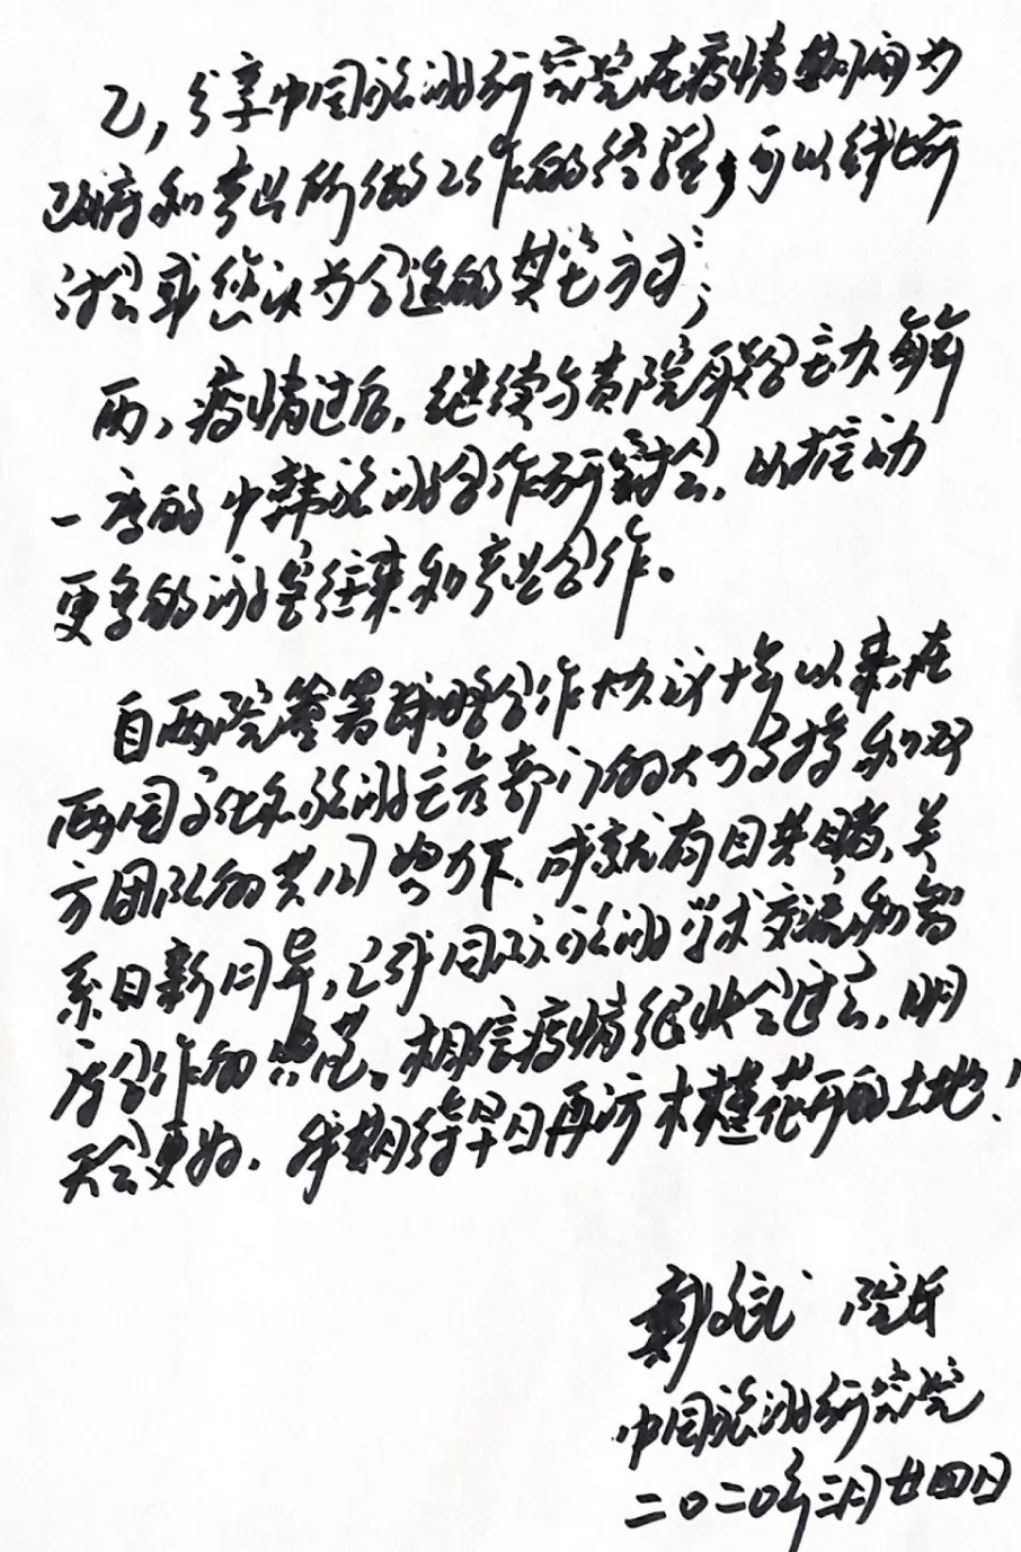 乙，分享中国旅游研究院在疫情期间为
政府和产业所做工作的经验，可以线上研
讨会或您认为合适的其它方式；
丙、疫情过后，继续与贵院联合主办每年
一度的中韩旅游合作研讨会，以推动
更多的游客往来和产业合作。
自两院签署战略合作协议十年以来在
两国文化和旅游主管部门的大力支持和双
方团队的共同努力下，成就有目共睹，关
系日新月异，已成国际旅游学术交流和智
库合作的典范。相信疫情很快会过去，明
天会更好。我期待早日再访木槿花开的土地！
戴斌 院长
中国旅游研究院
二〇二〇年三月廿四日